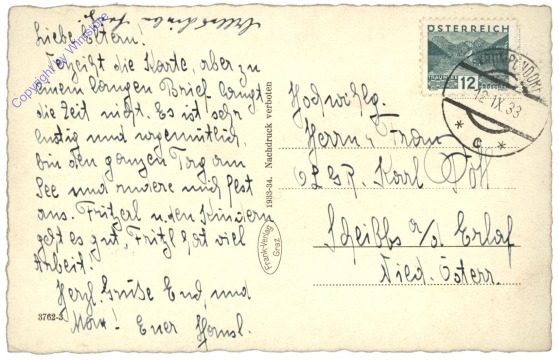 Liebe Eltern!
Verzeiht die Karte, aber zu
einem langen Brief langt
die Zeit nicht. Es ist sehr
lustig und urgemütlich,
bin den ganzen Tag am
See und und fest
aus. Fritzerl u. den Kindern
geht es gut, Fritzl hat viel
Arbeit.
Herzl. Grüße Euch, und
Euer Hansl.
3762-3
1933-34. Nachdruck verboten
Frank-Verlag
Graz
ÖSTERREICH
12
GROSCHEN
12.IX.33
* C *
Hochwohlg.
Herrn u. Frau
Karl
Scheibbs a/d Erlaf
Nied. Österr.
Copyright by